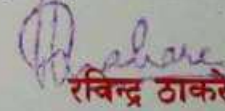 रविन्द्र ठाकरे